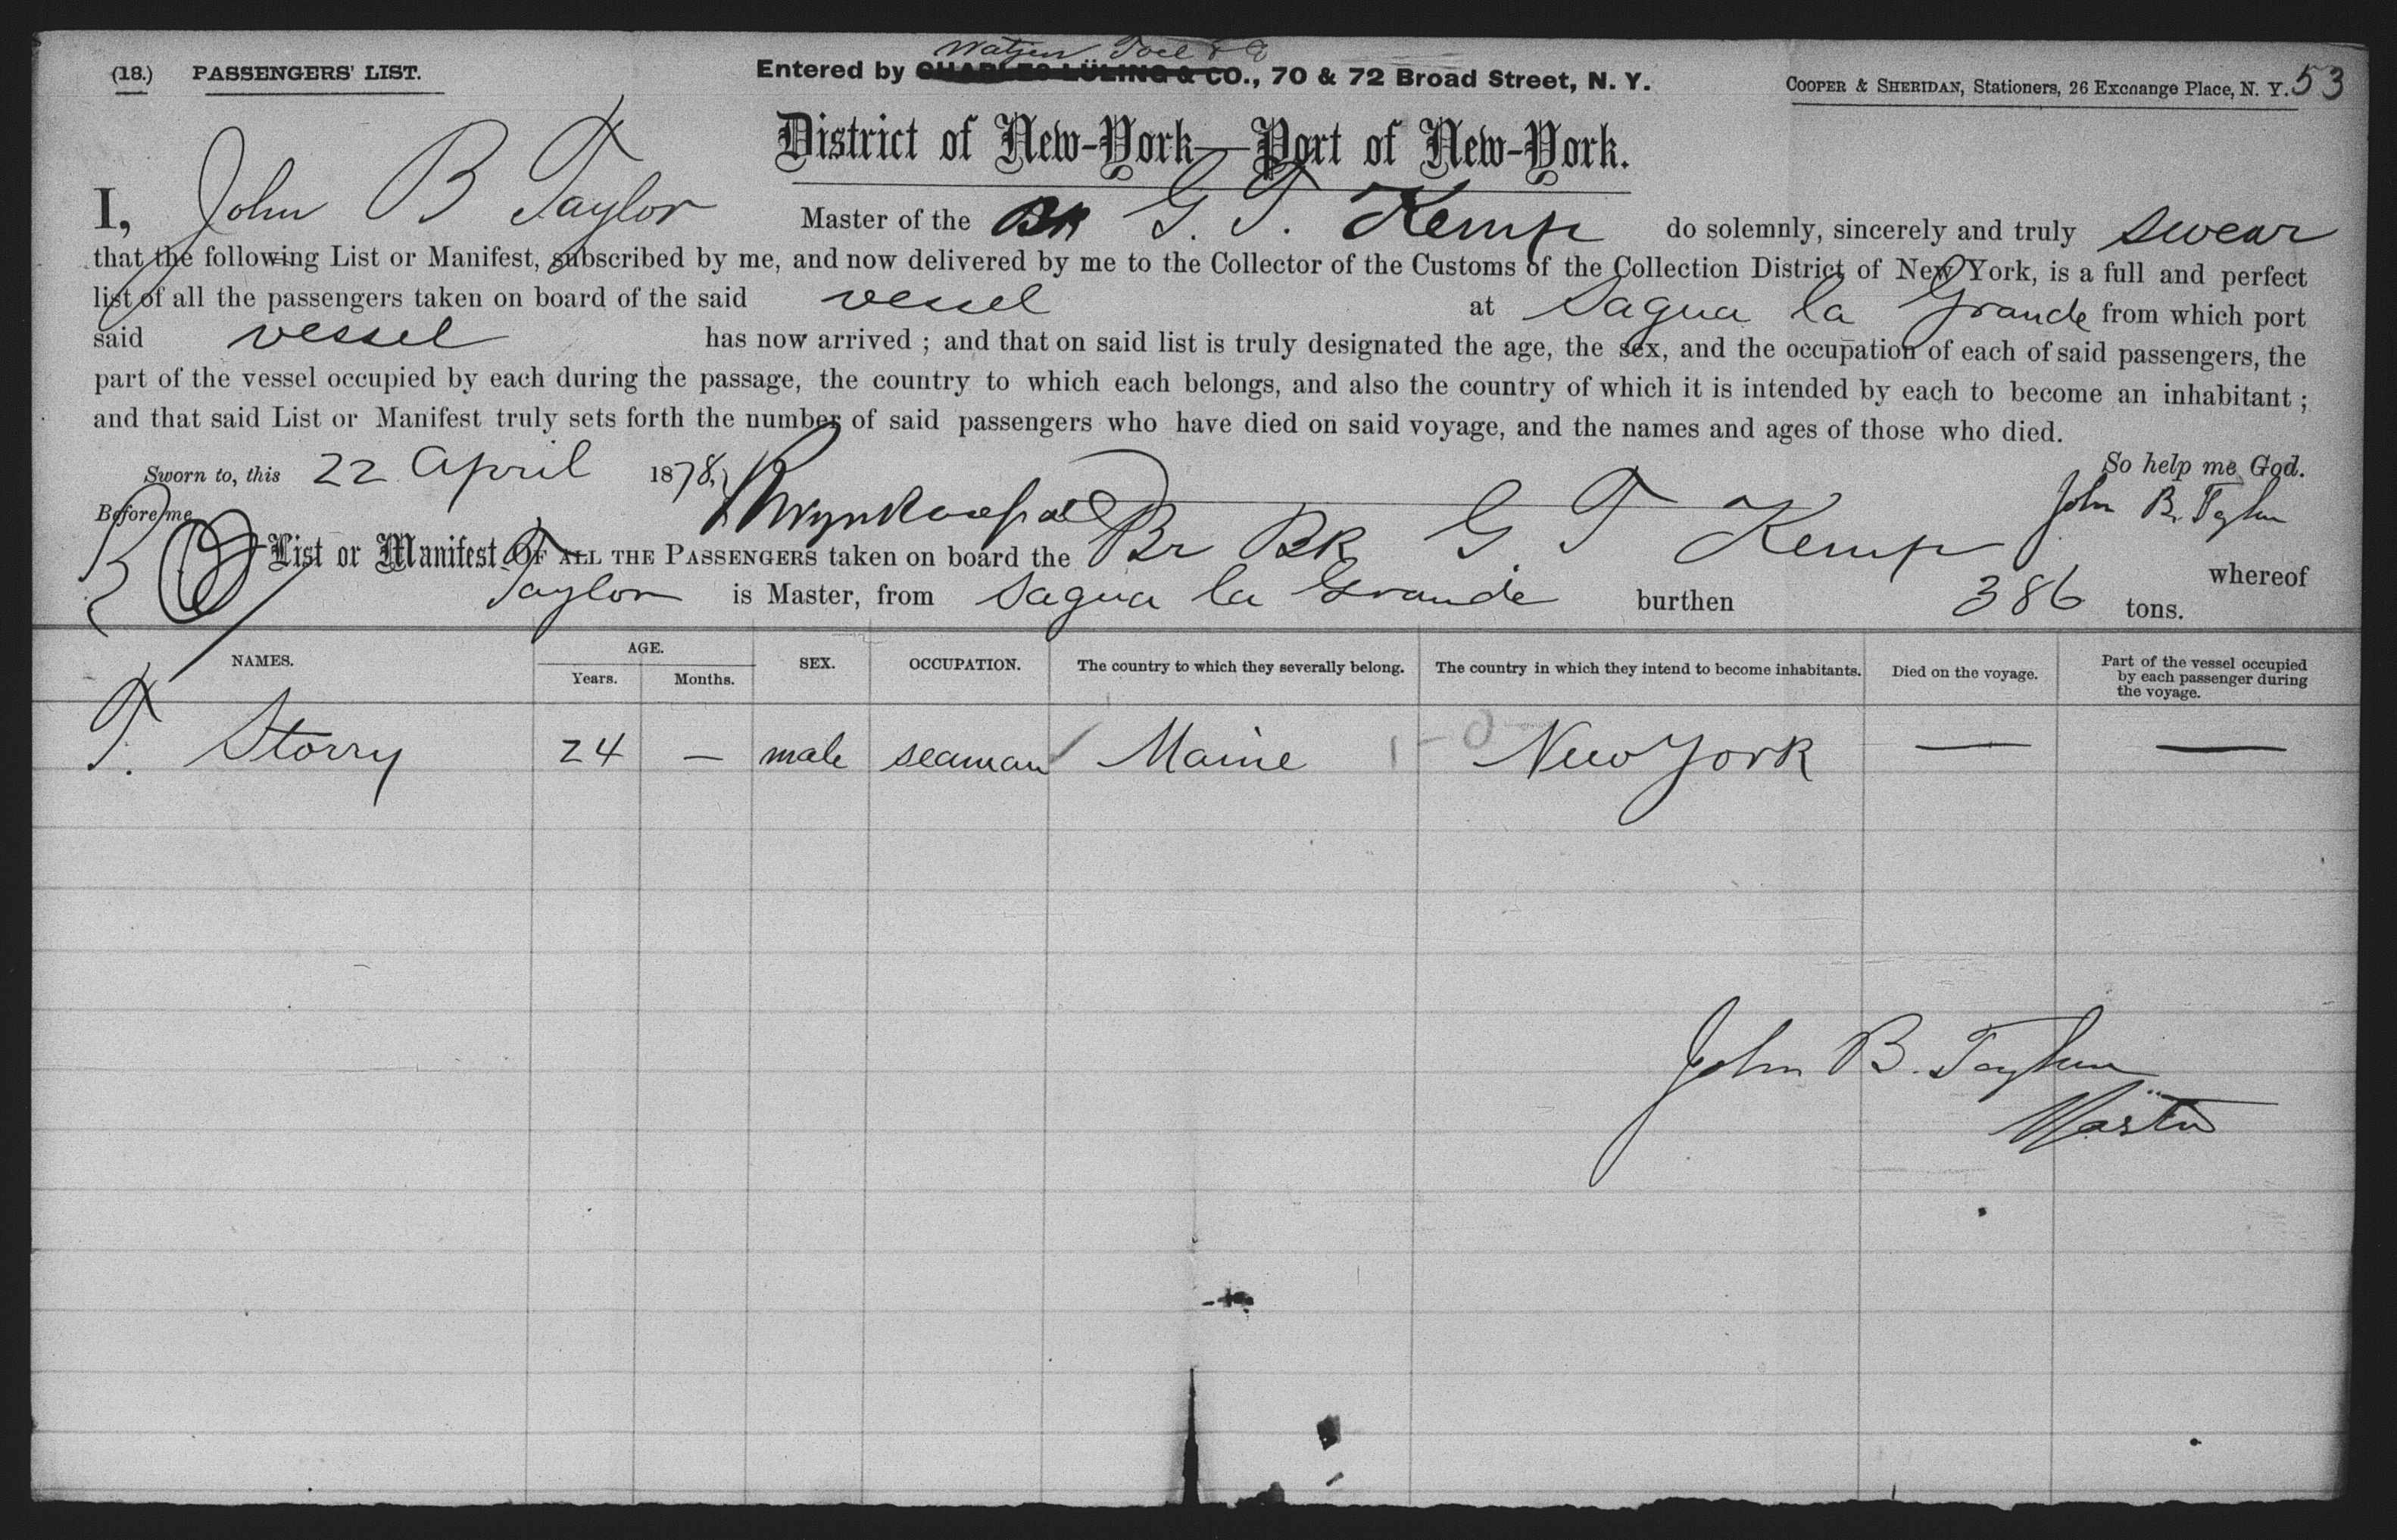 (18.) PASSENGERS' LIST.
Watjen Toel & Co
Entered by CHARLES LÜLING & CO., 70 & 72 Broad Street, N. Y.
COOPER & SHERIDAN, Stationers, 26 Exchange Place, N. Y. 53
District of New-York—Port of New-York.
I, John B Taylor Master of the Bk G. T. Kemp do solemnly, sincerely and truly swear
that the following List or Manifest, subscribed by me, and now delivered by me to the Collector of the Customs of the Collection District of New York, is a full and perfect
list of all the passengers taken on board of the said vessel at Sagua la Grande from which port
said vessel has now arrived ; and that on said list is truly designated the age, the sex, and the occupation of each of said passengers, the
part of the vessel occupied by each during the passage, the country to which each belongs, and also the country of which it is intended by each to become an inhabitant ;
and that said List or Manifest truly sets forth the number of said passengers who have died on said voyage, and the names and ages of those who died.
Sworn to, this 22 April 1878, So help me God.
Before me John B. Taylor
List or Manifest OF ALL THE PASSENGERS taken on board the Br Bk G T Kemp whereof
Taylor is Master, from Sagua la Grande burthen 386 tons.
NAMES. AGE. Years. Months. SEX. OCCUPATION. The country to which they severally belong. The country in which they intend to become inhabitants. Died on the voyage. Part of the vessel occupied by each passenger during the voyage.
T. Storry 24 — male seaman Maine 1-0- New York — —
John B. Taylor
Master